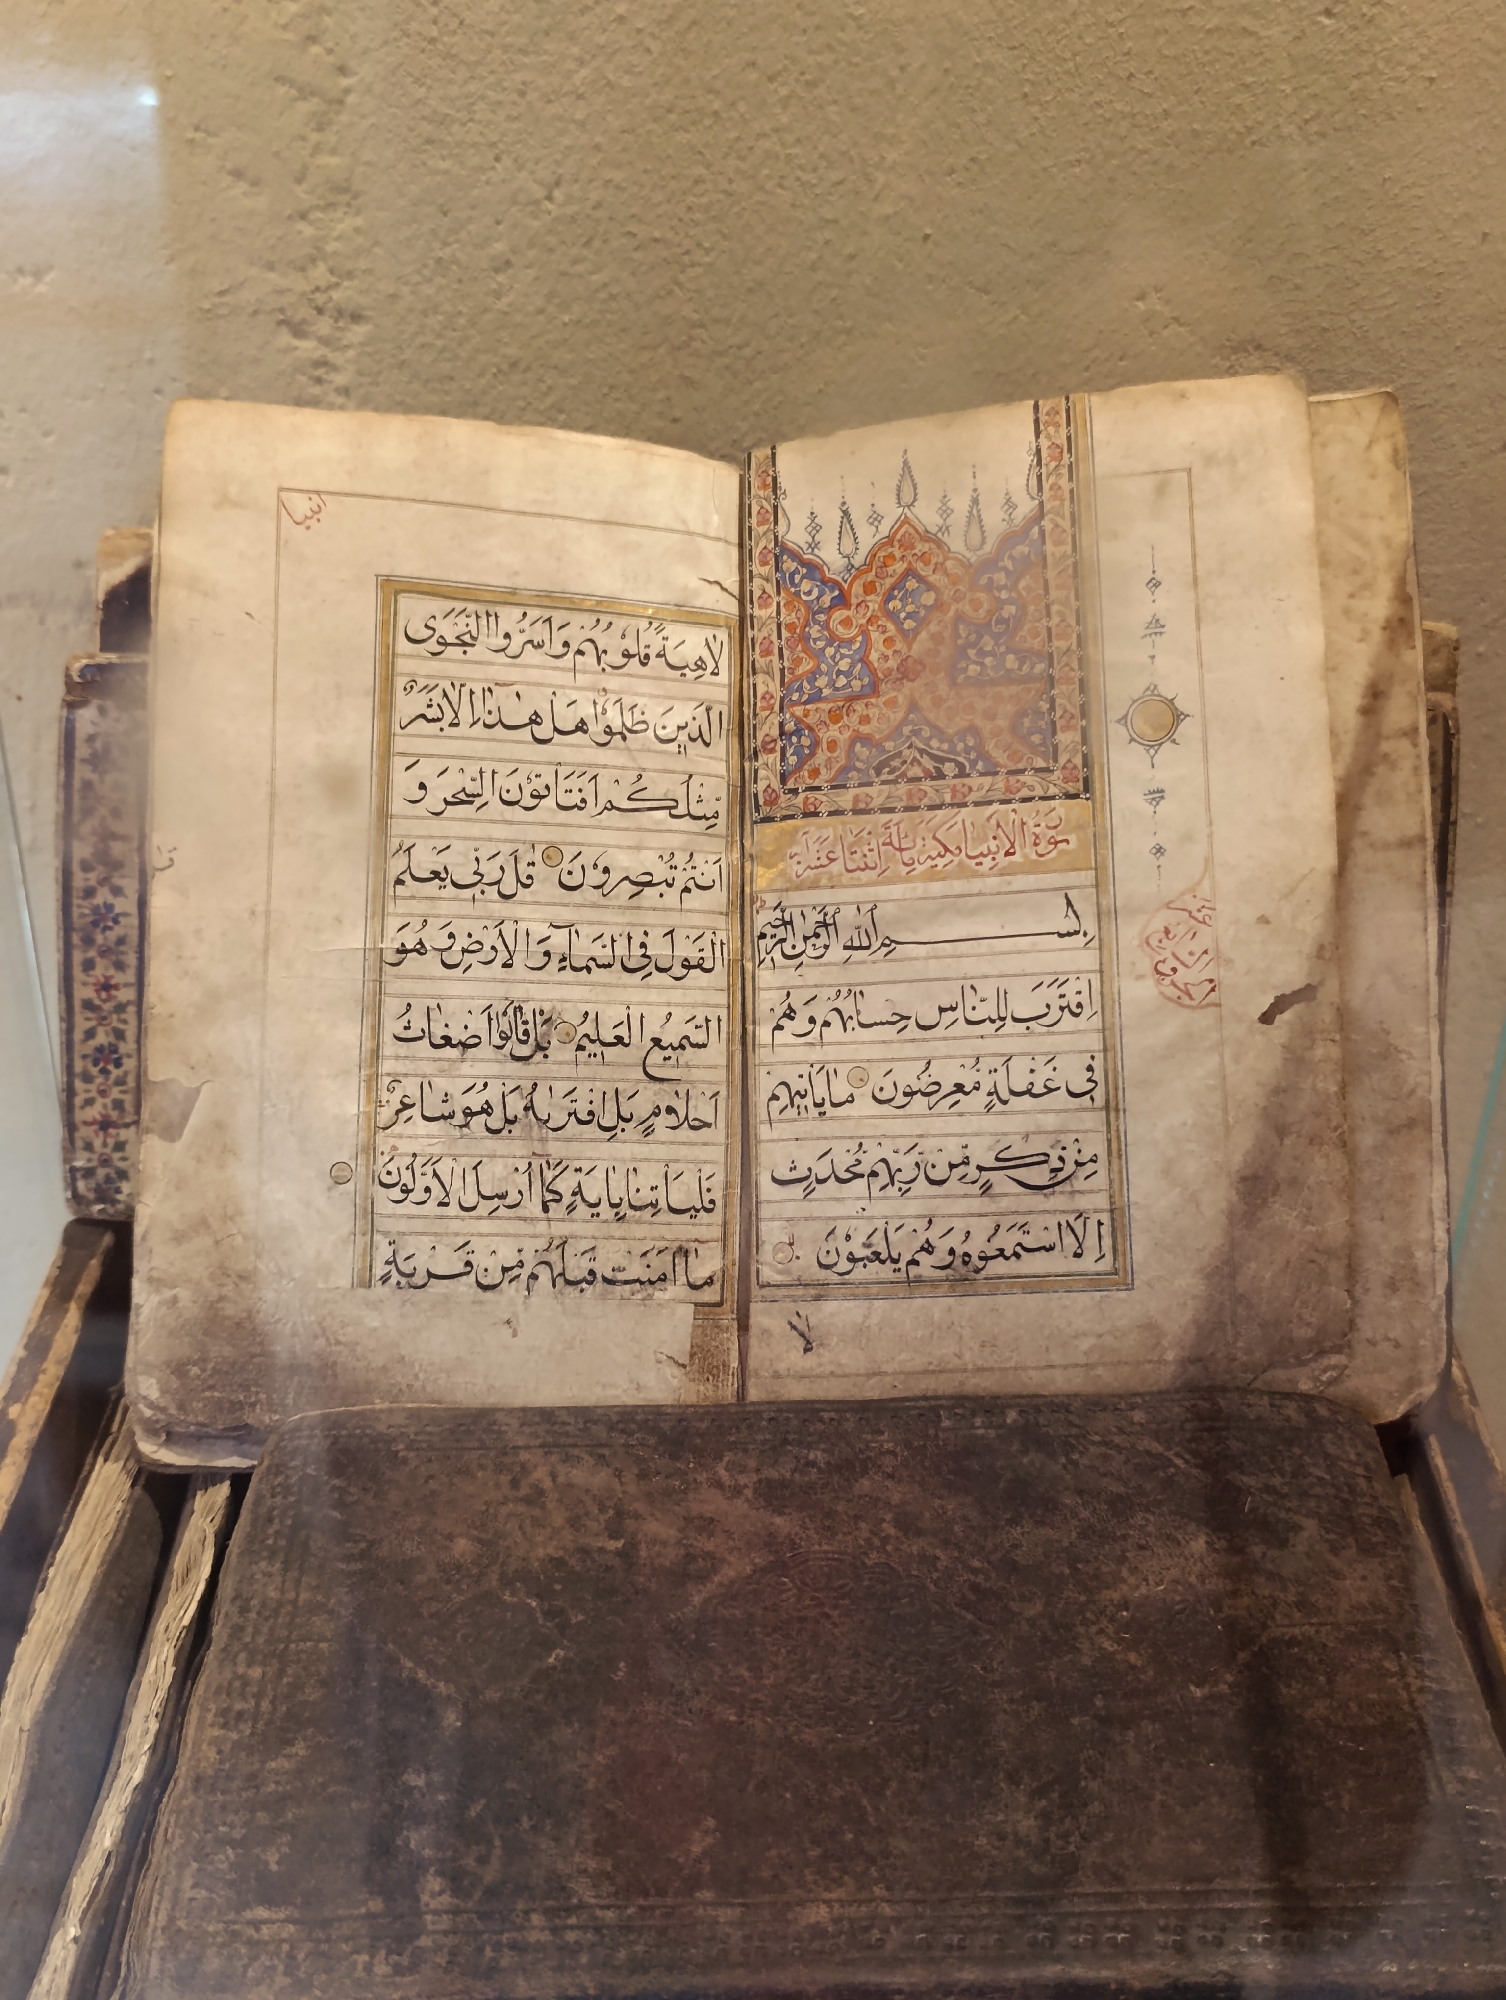 سورة الانبيا مكية مائة اثنتا عشر اية
بِسْمِ اللهِ الرَّحْمٰنِ الرَّحِيْمِ
اِقْتَرَبَ لِلنَّاسِ حِسَابُهُمْ وَهُمْ
فِى غَفْلَةٍ مُعْرِضُونَ مَا يَاْتِيْهِمْ
مِنْ ذِكْرٍ مِّنْ رَبِّهِمْ مُحْدَثٍ
اِلَّا اسْتَمَعُوهُ وَهُمْ يَلْعَبُوْنَ
لا
انبيا
لَاهِيَةً قُلُوْبُهُمْ وَاَسَرُّوا النَّجْوَى
الَّذِيْنَ ظَلَمُوْا هَلْ هٰذَا اِلَّا بَشَرٌ
مِّثْلُكُمْ اَفَتَاْتُوْنَ السِّحْرَ وَ
اَنْتُمْ تُبْصِرُوْنَ قٰلَ رَبِّى يَعْلَمُ
الْقَوْلَ فِى السَّمَآءِ وَالْاَرْضِ وَهُوَ
السَّمِيْعُ الْعَلِيْمُ بَلْ قَالُوْا اَضْغَاثُ
اَحْلَامٍ بَلِ افْتَرٰىهُ بَلْ هُوَ شَاعِرٌ
فَلْيَاْتِنَا بِاٰيَةٍ كَمَا اُرْسِلَ الْاَوَّلُوْنَ
مَا اٰمَنَتْ قَبْلَهُمْ مِّنْ قَرْيَةٍ